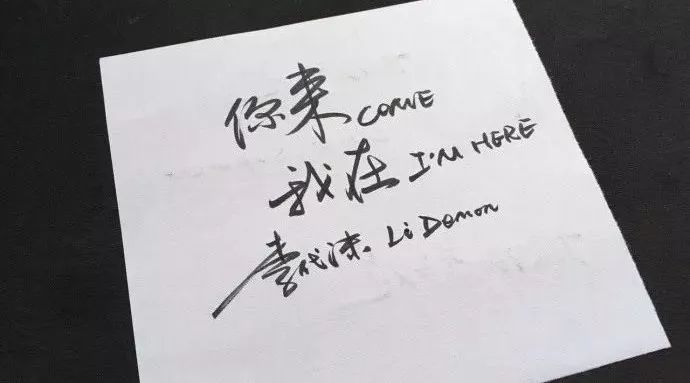 你来 COME
我在 I'M HERE
李代沫. Li Demon